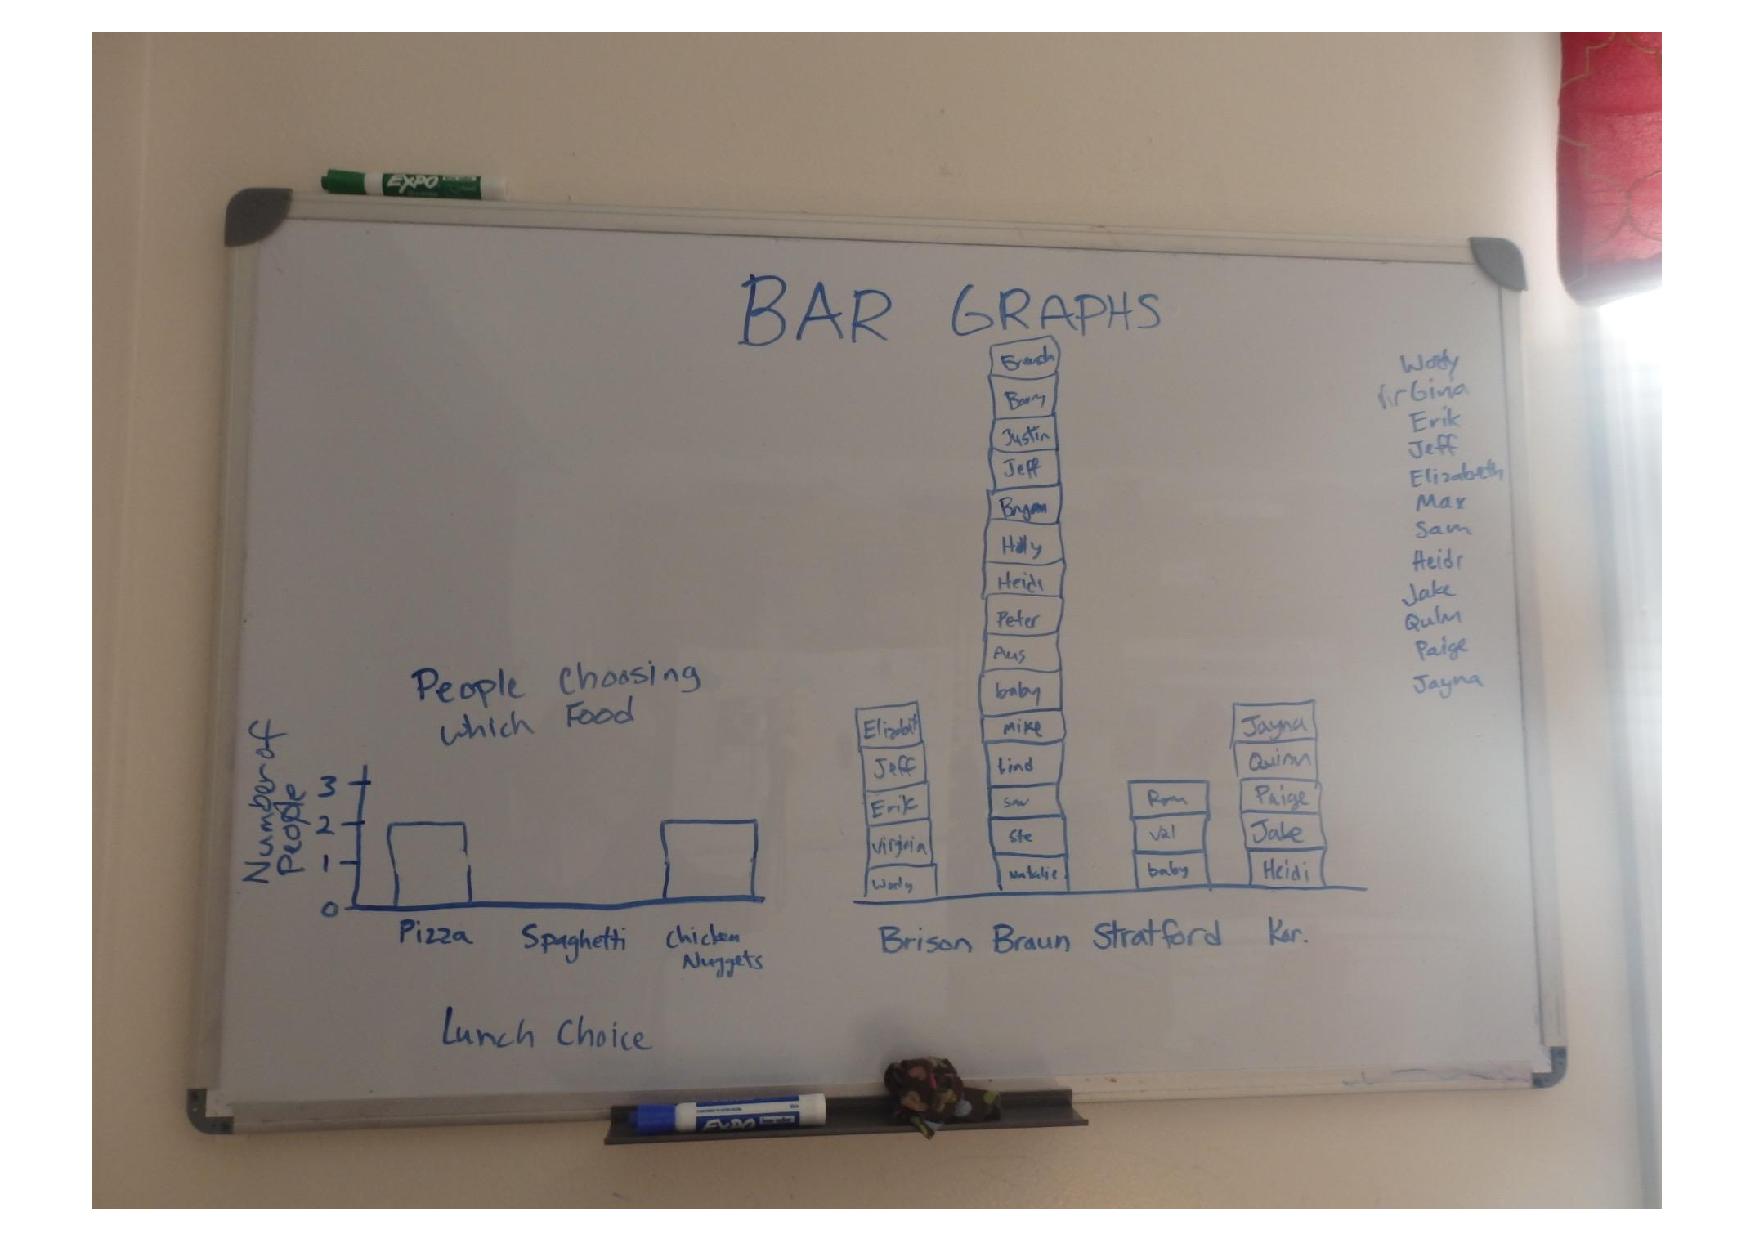 EXPO
BAR GRAPHS
People Choosing
which Food
Number of
People
3
2
1
0
Pizza
Spaghetti
Chicken
Nuggets
Lunch Choice
Elizabet
Jeff
Erik
Virginia
Wody
Barry
Justin
Jeff
Bryan
Holly
Heidi
Peter
Aus
baby
Mike
Lind
Ste
Natalie
Rom
Val
baby
Jayna
Quinn
Paige
Jake
Heidi
Brison Braun Stratford Kar.
Wody
VirGinia
Erik
Jeff
Elizabeth
Max
Sam
Heidi
Jake
Quin
Paige
Jayna
EXPO